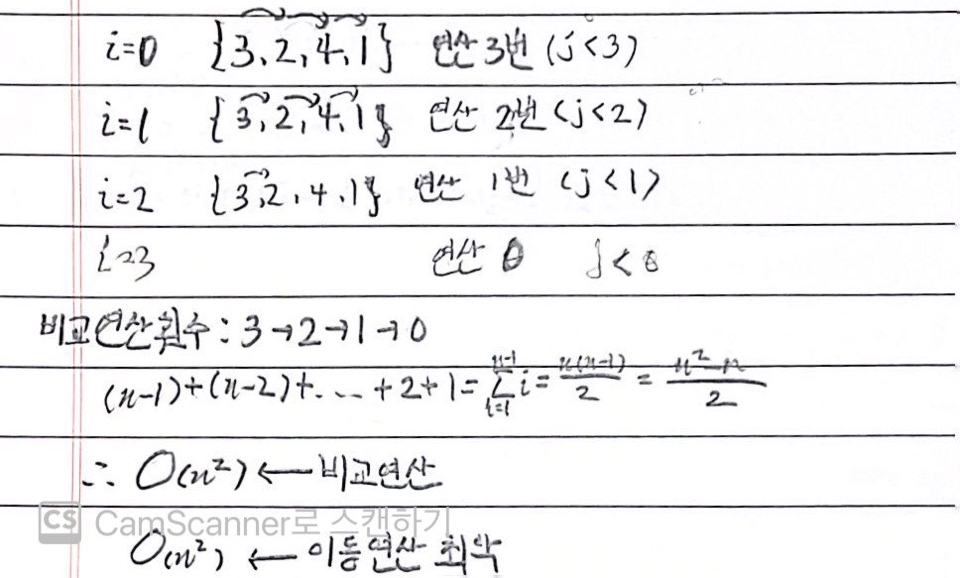 i=0 {3,2,4,1} 연산 3번 (j<3)
i=1 {3,2,4,1} 연산 2번 (j<2)
i=2 {3,2,4,1} 연산 1번 (j<1)
i=3 연산 0 j<0
비교연산횟수 : 3→2→1→0
(n-1)+(n-2)+... +2+1=∑_{i=1}^{n-1} i = n(n-1)/2 = n²-n/2
∴ O(n²) ← 비교연산
CS CamScanner로 스캔하기
O(n²) ← 이동연산 최악